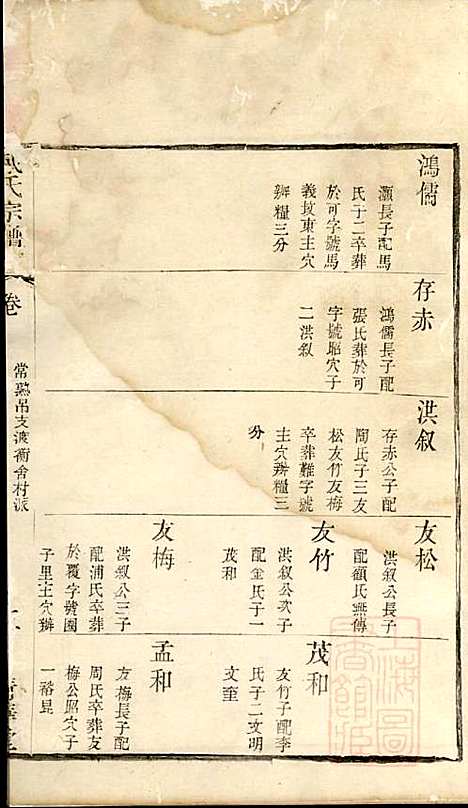 鴻儒
灝長子配馬
氏子二卒葬
於可字號馬
義墳東主穴
辦糧三分
存赤
鴻儒長子配
張氏葬於可
字號昭穴子
二洪叙
洪叙
存赤公子配
陶氏子三友
松友竹友梅
卒葬難字號
主穴辦糧三
分
友松
洪叙公長子
配顧氏無傳
友竹
洪叙公次子
配金氏子一
茂和
友梅
洪叙公三子
配浦氏卒葬
於覆字號園
子里主穴辦
茂和
友竹子配李
氏子二文明
文奎
孟和
友梅長子配
周氏卒葬友
梅公昭穴子
一裕昆
氏宗譜
卷
常熟吊支渡衖舍村派